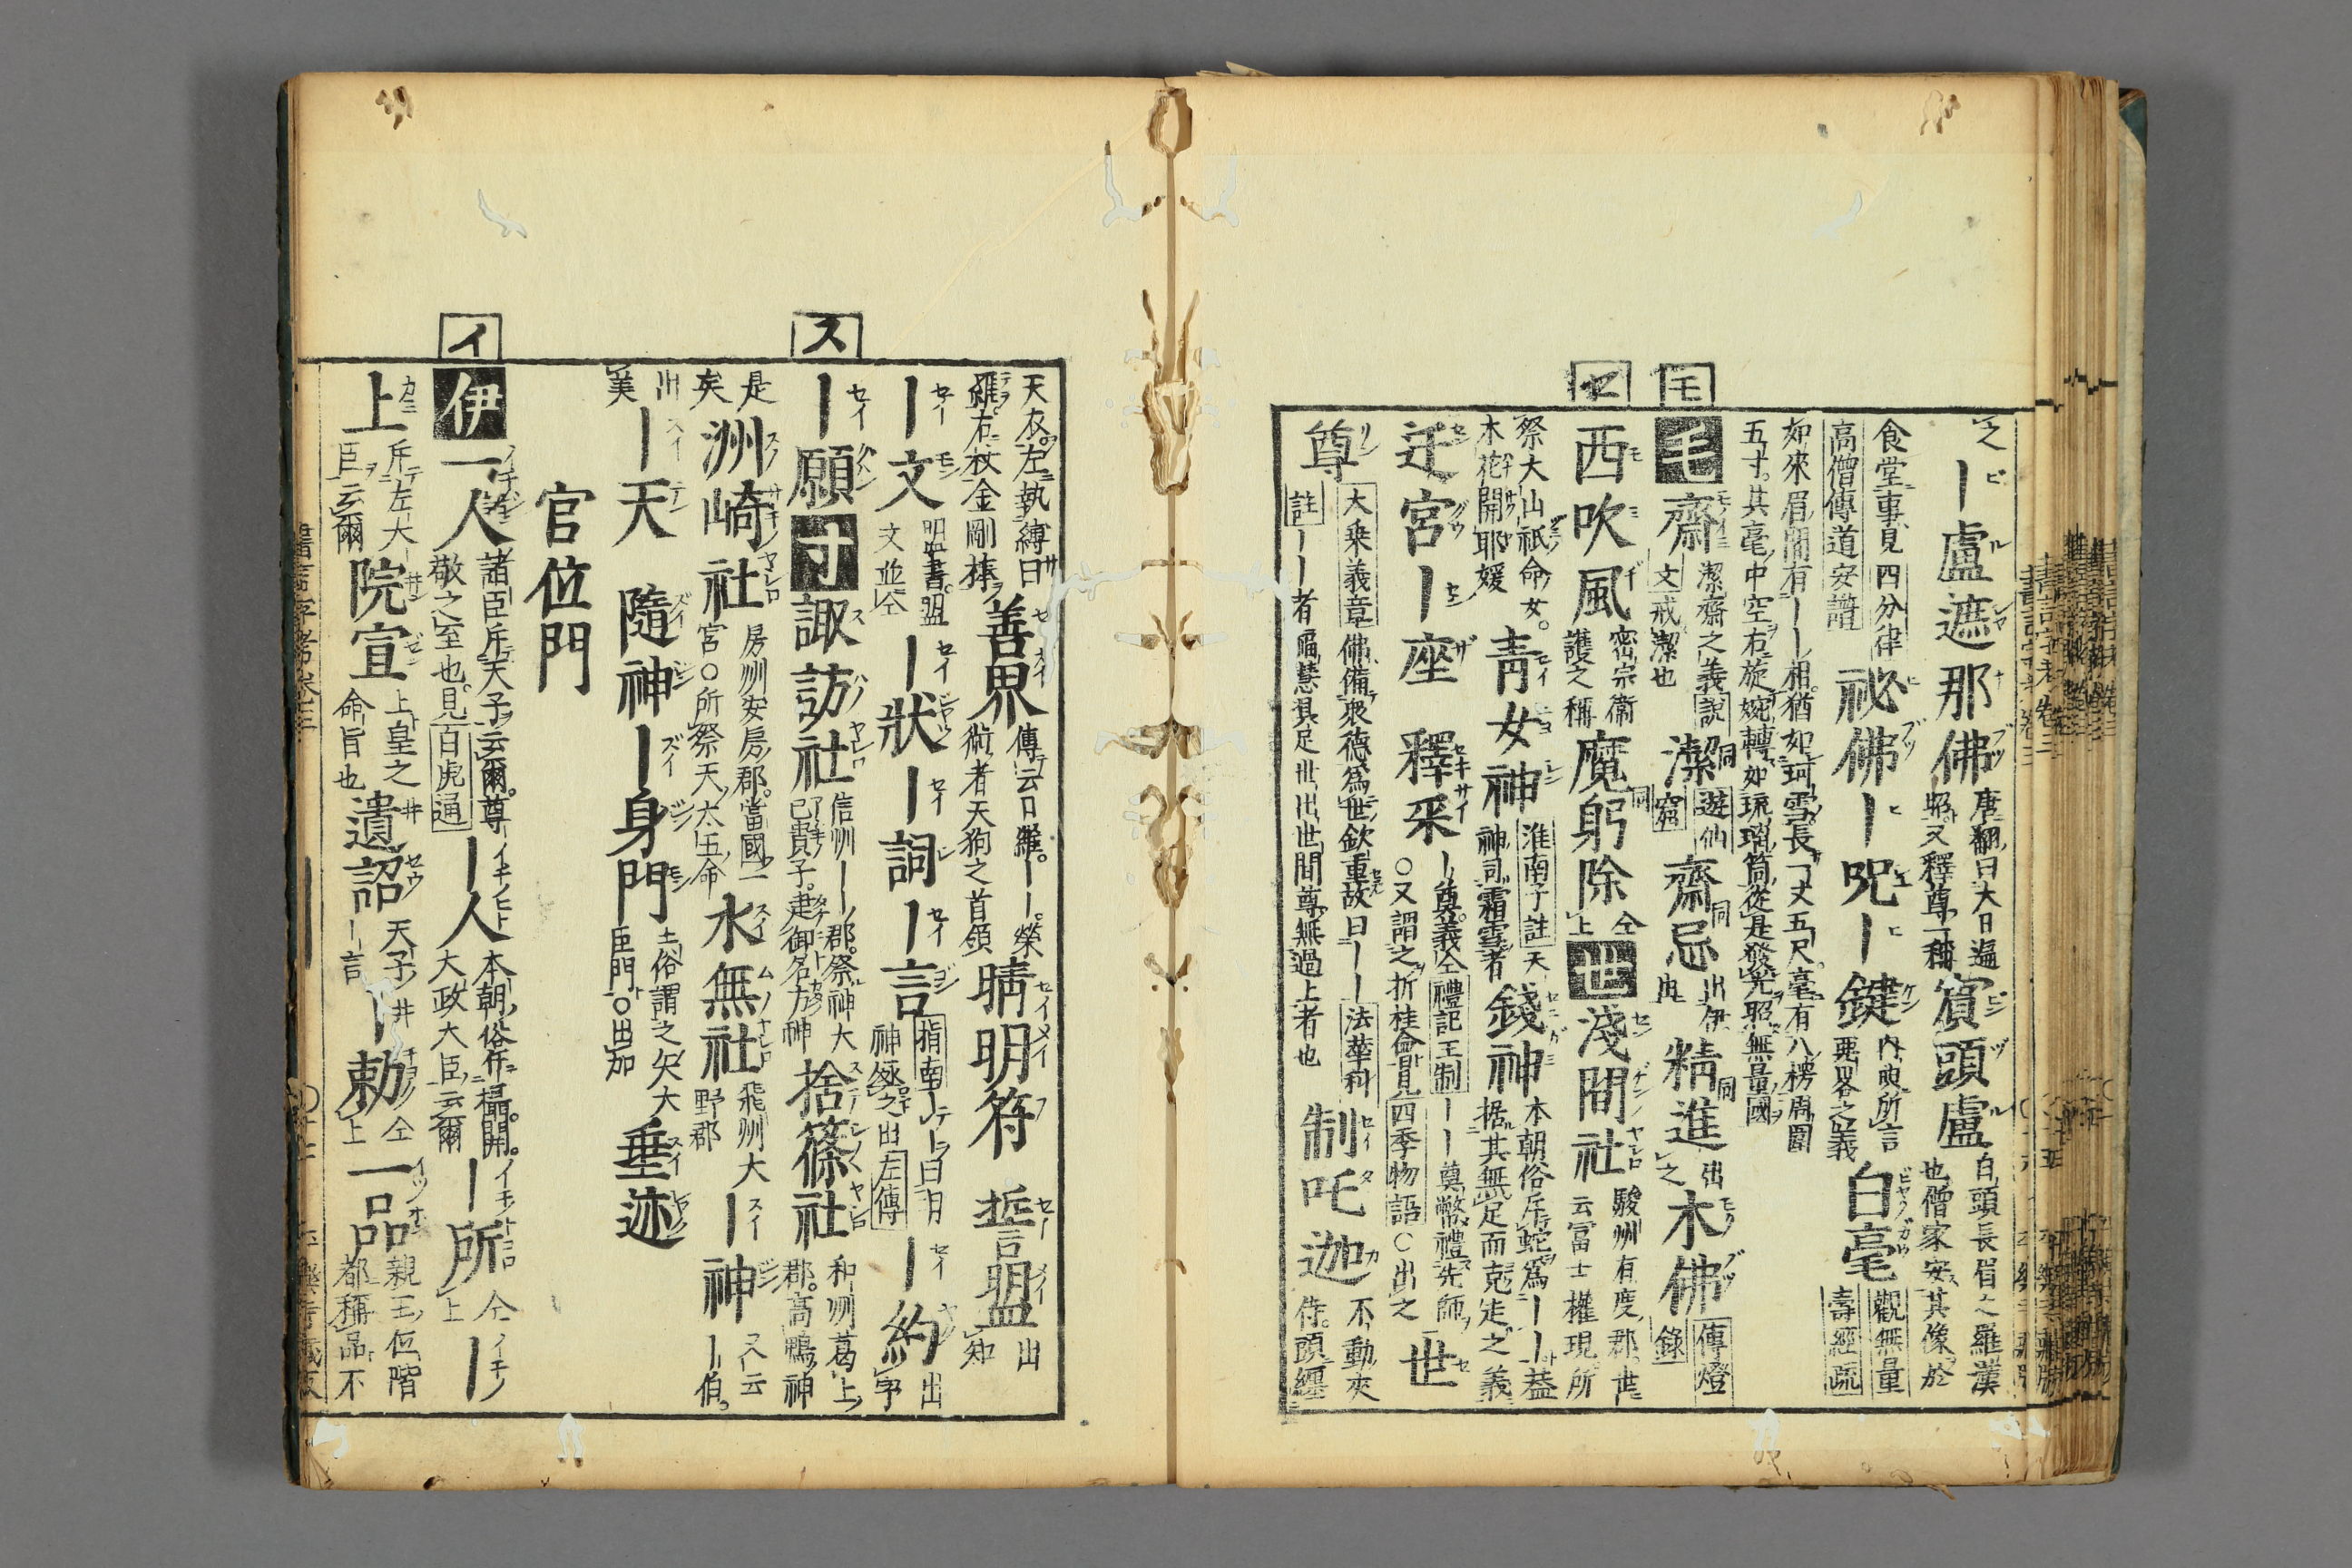 モ
セ
乀｜盧遮那佛 唐翻曰大日遍照又釋尊一稱 賓頭盧 白頭長眉之羅漢也僧家安其像於
食堂事見四分律高僧傳道安譜 祕佛 ｜呪 ｜鍵 内典所言要畧之義 白毫 觀無量壽經疏
如來眉間有｜｜相猶如珂雪長一丈五尺毫有八楞周圍五寸其毫中空右旋婉轉如琉璃筒從是發光照無量國
毛 齋 潔齋之義説文戒潔也 潔 同遊仙窟 齋忌 同出伊 精進 同出之 木佛 傳燈錄
西吹風 密宗衞護之稱 魔躬除 仝上 世 淺間社 駿州有度郡世云冨士權現所
祭大山祇命女木花開耶媛 青女神 淮南子註天神司霜雪者 錢神 本朝俗斥蛇爲｜｜蓋据其無足而走之義
迁宮 ｜座 釋采 ｜奠義仝禮記王制｜｜奠幣禮先師○又謂之折桂會見四季物語○出之 世
尊 大乗義章佛備衆德爲世欽重故曰｜｜法華科註｜｜者福慧具足世出世間尊無過上者也 制吒迦 不動夾侍頭纒
ス
イ
天衣左執縛曰羅右杖金剛棒 善界 傳云日羅｜｜榮術者天狗之首領 晴明符 誓盟 出知
｜文 盟書盟文並仝 ｜狀 ｜詞 ｜言 指南｜ト曰月神極之出左傳 ｜約 出
｜願 寸 諏訪社 信州｜｜郡祭神大己貴子建御名方神 捨篠社 和州葛上郡高鴨神
是矣 洲崎社 房州安房郡當國一宮○所祭天太玉命 水無社 飛州大野郡 ｜神 ス云｜伯
美 ｜天 隨神 ｜身門 土俗謂之矢大臣門○出加 垂迹
官位門
伊 一人 諸臣斥天子云爾尊敬之至也見百虎通 ｜人 本朝俗作櫑開大政大臣云爾 ｜所 仝上 ｜
上 斥左大臣云爾 院宣 上皇之命旨也 遺詔 天子｜言 ｜勅 仝上 一品 親王位階都稱品不